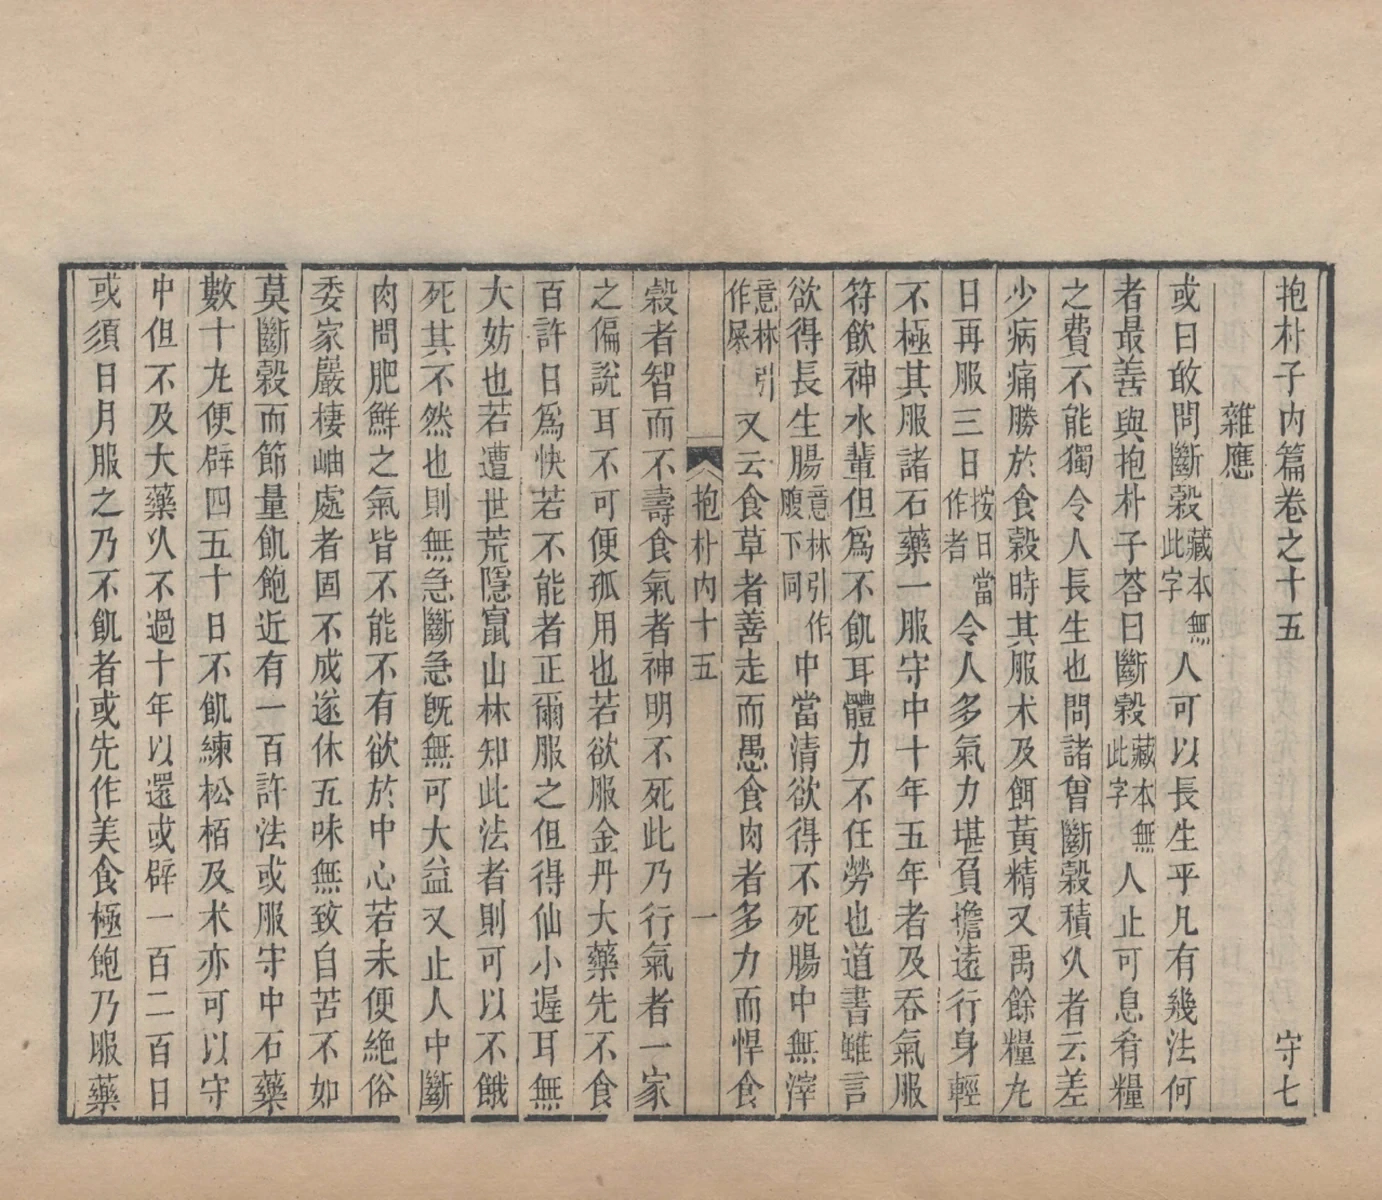 抱朴子內篇卷之十五　守七
雜應
或曰敢問斷穀藏本無此字人可以長生乎凡有幾法何
者最善與抱朴子荅曰斷穀藏本無此字人止可息肴糧
之費不能獨令人長生也問諸曾斷穀積久者云差
少病痛勝於食穀時其服术及餌黃精又禹餘糧丸
日再服三日按日當作者令人多氣力堪負擔遠行身輕
不極其服諸石藥一服守中十年五年者及吞氣服
符飲神水輩但爲不飢耳體力不任勞也道書雖言
欲得長生腸意林引作腹下同中當清欲得不死腸中無滓
意林引作屎又云食草者善走而愚食肉者多力而悍食
抱朴內十五　一
穀者智而不壽食氣者神明不死此乃行氣者一家
之偏說耳不可便孤用也若欲服金丹大藥先不食
百許日爲快若不能者正爾服之但得仙小遲耳無
大妨也若遭世荒隱竄山林知此法者則可以不餓
死其不然也則無急斷急旣無可大益又止人中斷
肉間肥鮮之氣皆不能不有欲於中心若未便絶俗
委家巖棲岫處者固不成遂休五味無致自苦不如
莫斷穀而節量飢飽近有一百許法或服守中石藥
數十丸便辟四五十日不飢練松栢及术亦可以守
中但不及大藥久不過十年以還或辟一百二百日
或須日月服之乃不飢者或先作美食極飽乃服藥